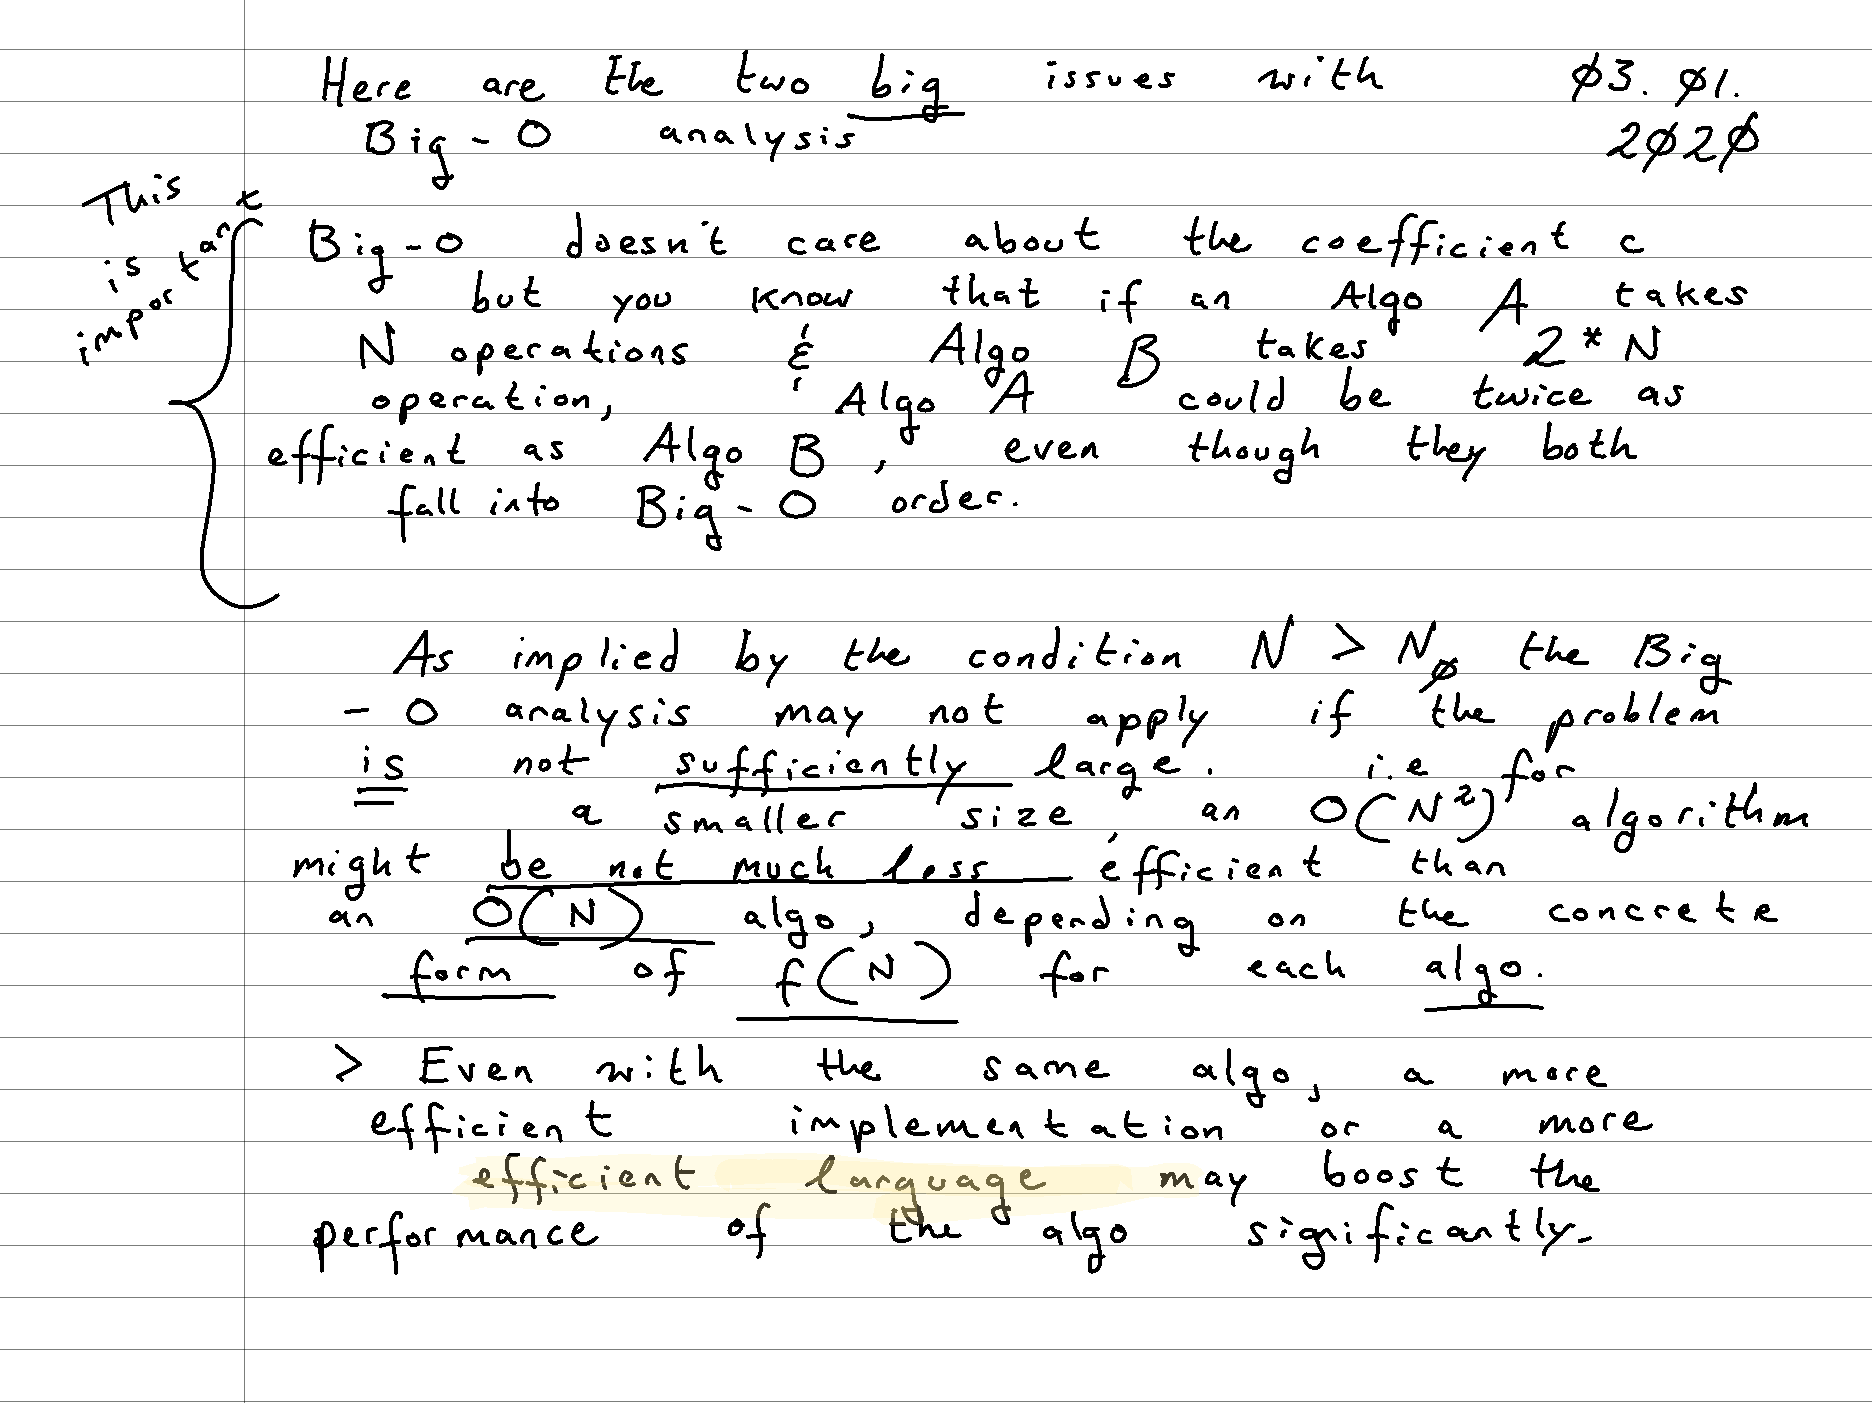 Here are the two big issues with
Big-O analysis
03.01.
2020
This
is
important
Big-O doesn't care about the coefficient c
but you know that if an Algo A takes
N operations & Algo B takes 2*N
operation, Algo A could be twice as
efficient as Algo B, even though they both
fall into Big-O order.
As implied by the condition N > N₀ the Big
-O analysis may not apply if the problem
is not sufficiently large. i.e for
a smaller size, an O(N²) algorithm
might be not much less efficient than
an O(N) algo, depending on the concrete
form of f(N) for each algo.
> Even with the same algo, a more
efficient implementation or a more
efficient language may boost the
performance of the algo significantly.